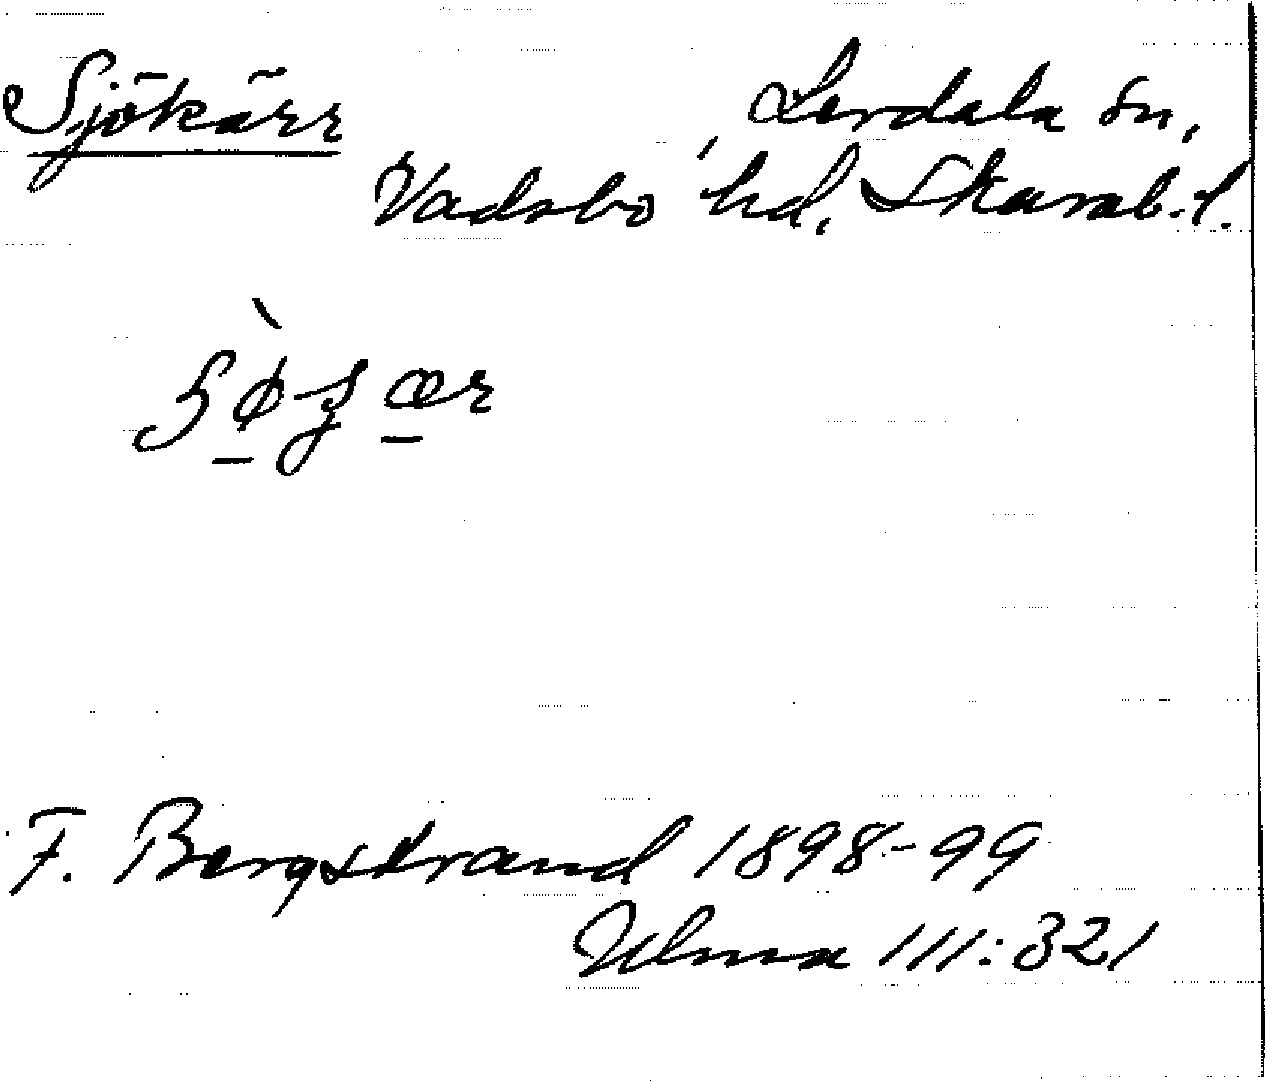 Sjökärr
Lerdala sn,
Vadsbo hd, Skarab.l.
F. Bergstrand 1898-99
Ulma 111:321